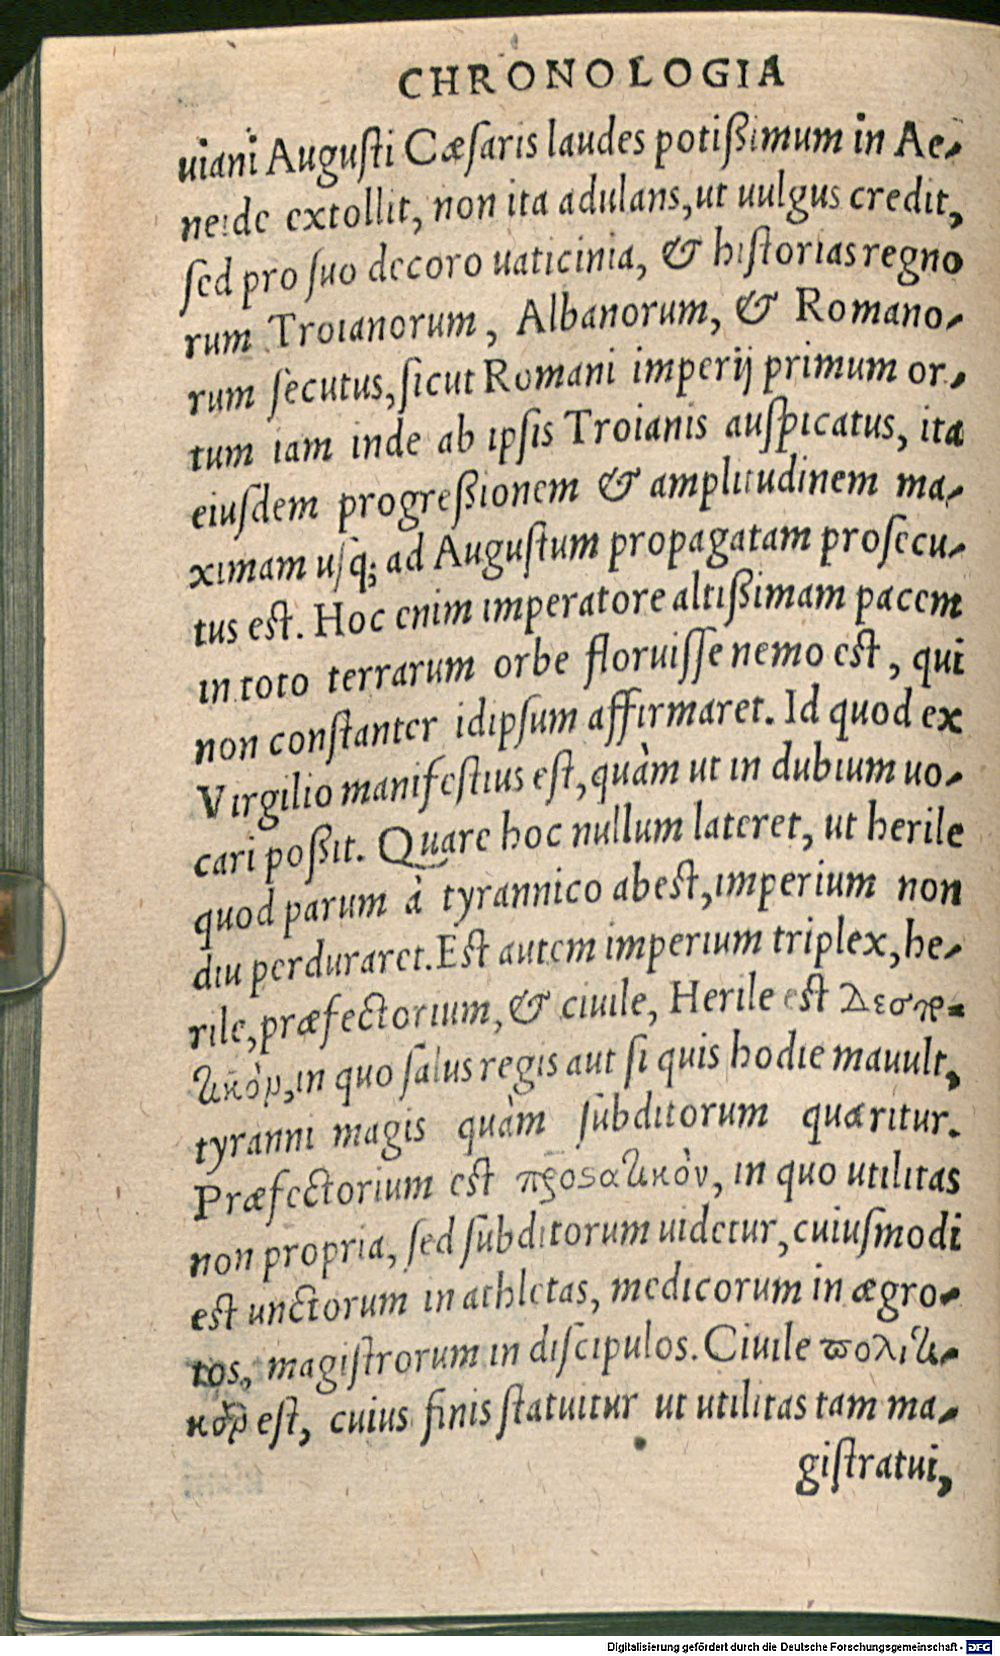 CHRONOLOGIA
uiani Augusti Cæsaris laudes potißimum in Ae-
neide extollit, non ita adulans, ut uulgus credit,
sed pro suo decoro uaticinia, & historias regno
rum Troianorum, Albanorum, & Romano-
rum secutus, sicut Romani imperij primum or-
tum iam inde ab ipsis Troianis auspicatus, ita
eiusdem progreßionem & amplitudinem ma-
ximam usq; ad Augustum propagatam prosecu-
tus est. Hoc enim imperatore altißimam pacem
in toto terrarum orbe floruisse nemo est, qui
non constanter idipsum affirmaret. Id quod ex
Virgilio manifestius est, quàm ut in dubium uo-
cari poßit. Quare hoc nullum lateret, ut herile
quod parum à tyrannico abest, imperium non
diu perduraret. Est autem imperium triplex, he-
rile, præfectorium, & ciuile, Herile est Δεσπο-
τικὸν, in quo salus regis aut si quis hodie mauult,
tyranni magis quàm subditorum quæritur.
Præfectorium est προστατικὸν, in quo utilitas
non propria, sed subditorum uidetur, cuiusmodi
est unctorum in athletas, medicorum in ægro-
tos, magistrorum in discipulos. Ciuile πολιτι-
κὸν est, cuius finis statuitur ut utilitas tam ma-
gistratui,
Digitalisierung gefördert durch die Deutsche Forschungsgemeinschaft - DFG